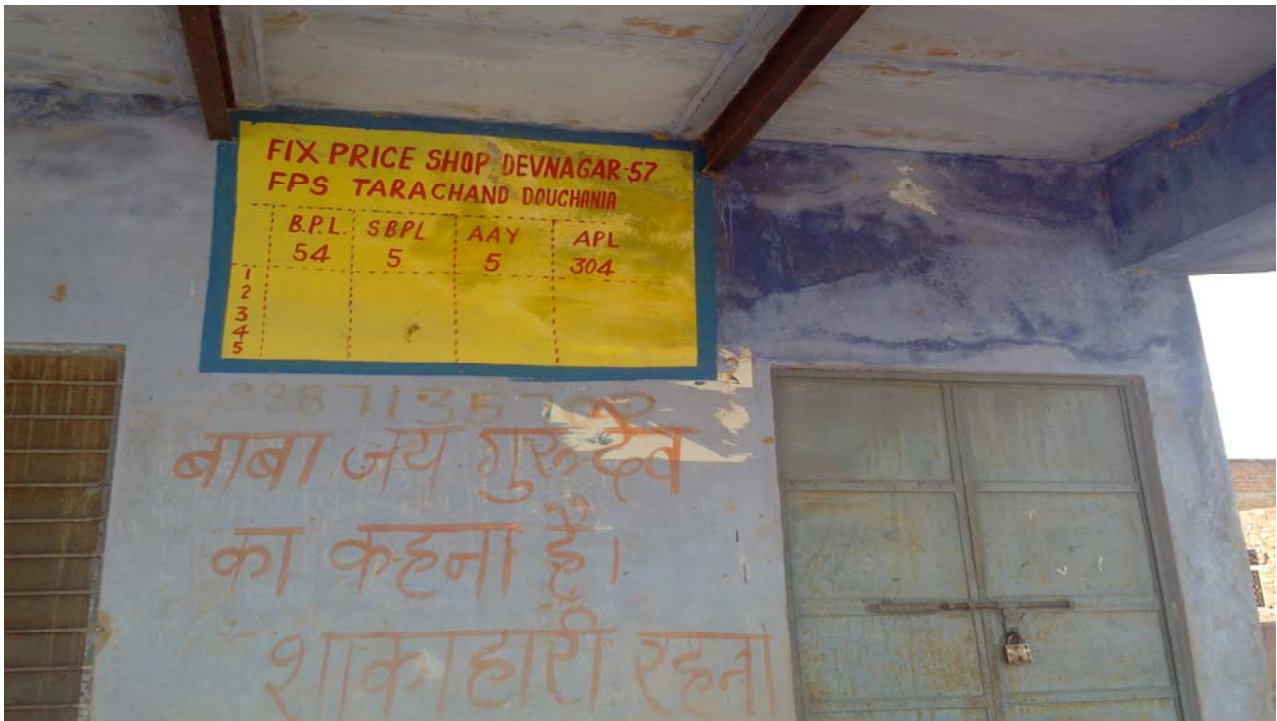 FIX PRICE SHOP DEVNAGAR-57
FPS TARACHAND DOUCHANIA
B.P.L. SBPL AAY APL
54 5 5 304
1
2
3
4
5
बाबा जय गुरुदेव
का कहना है।
शाकाहारी रहना